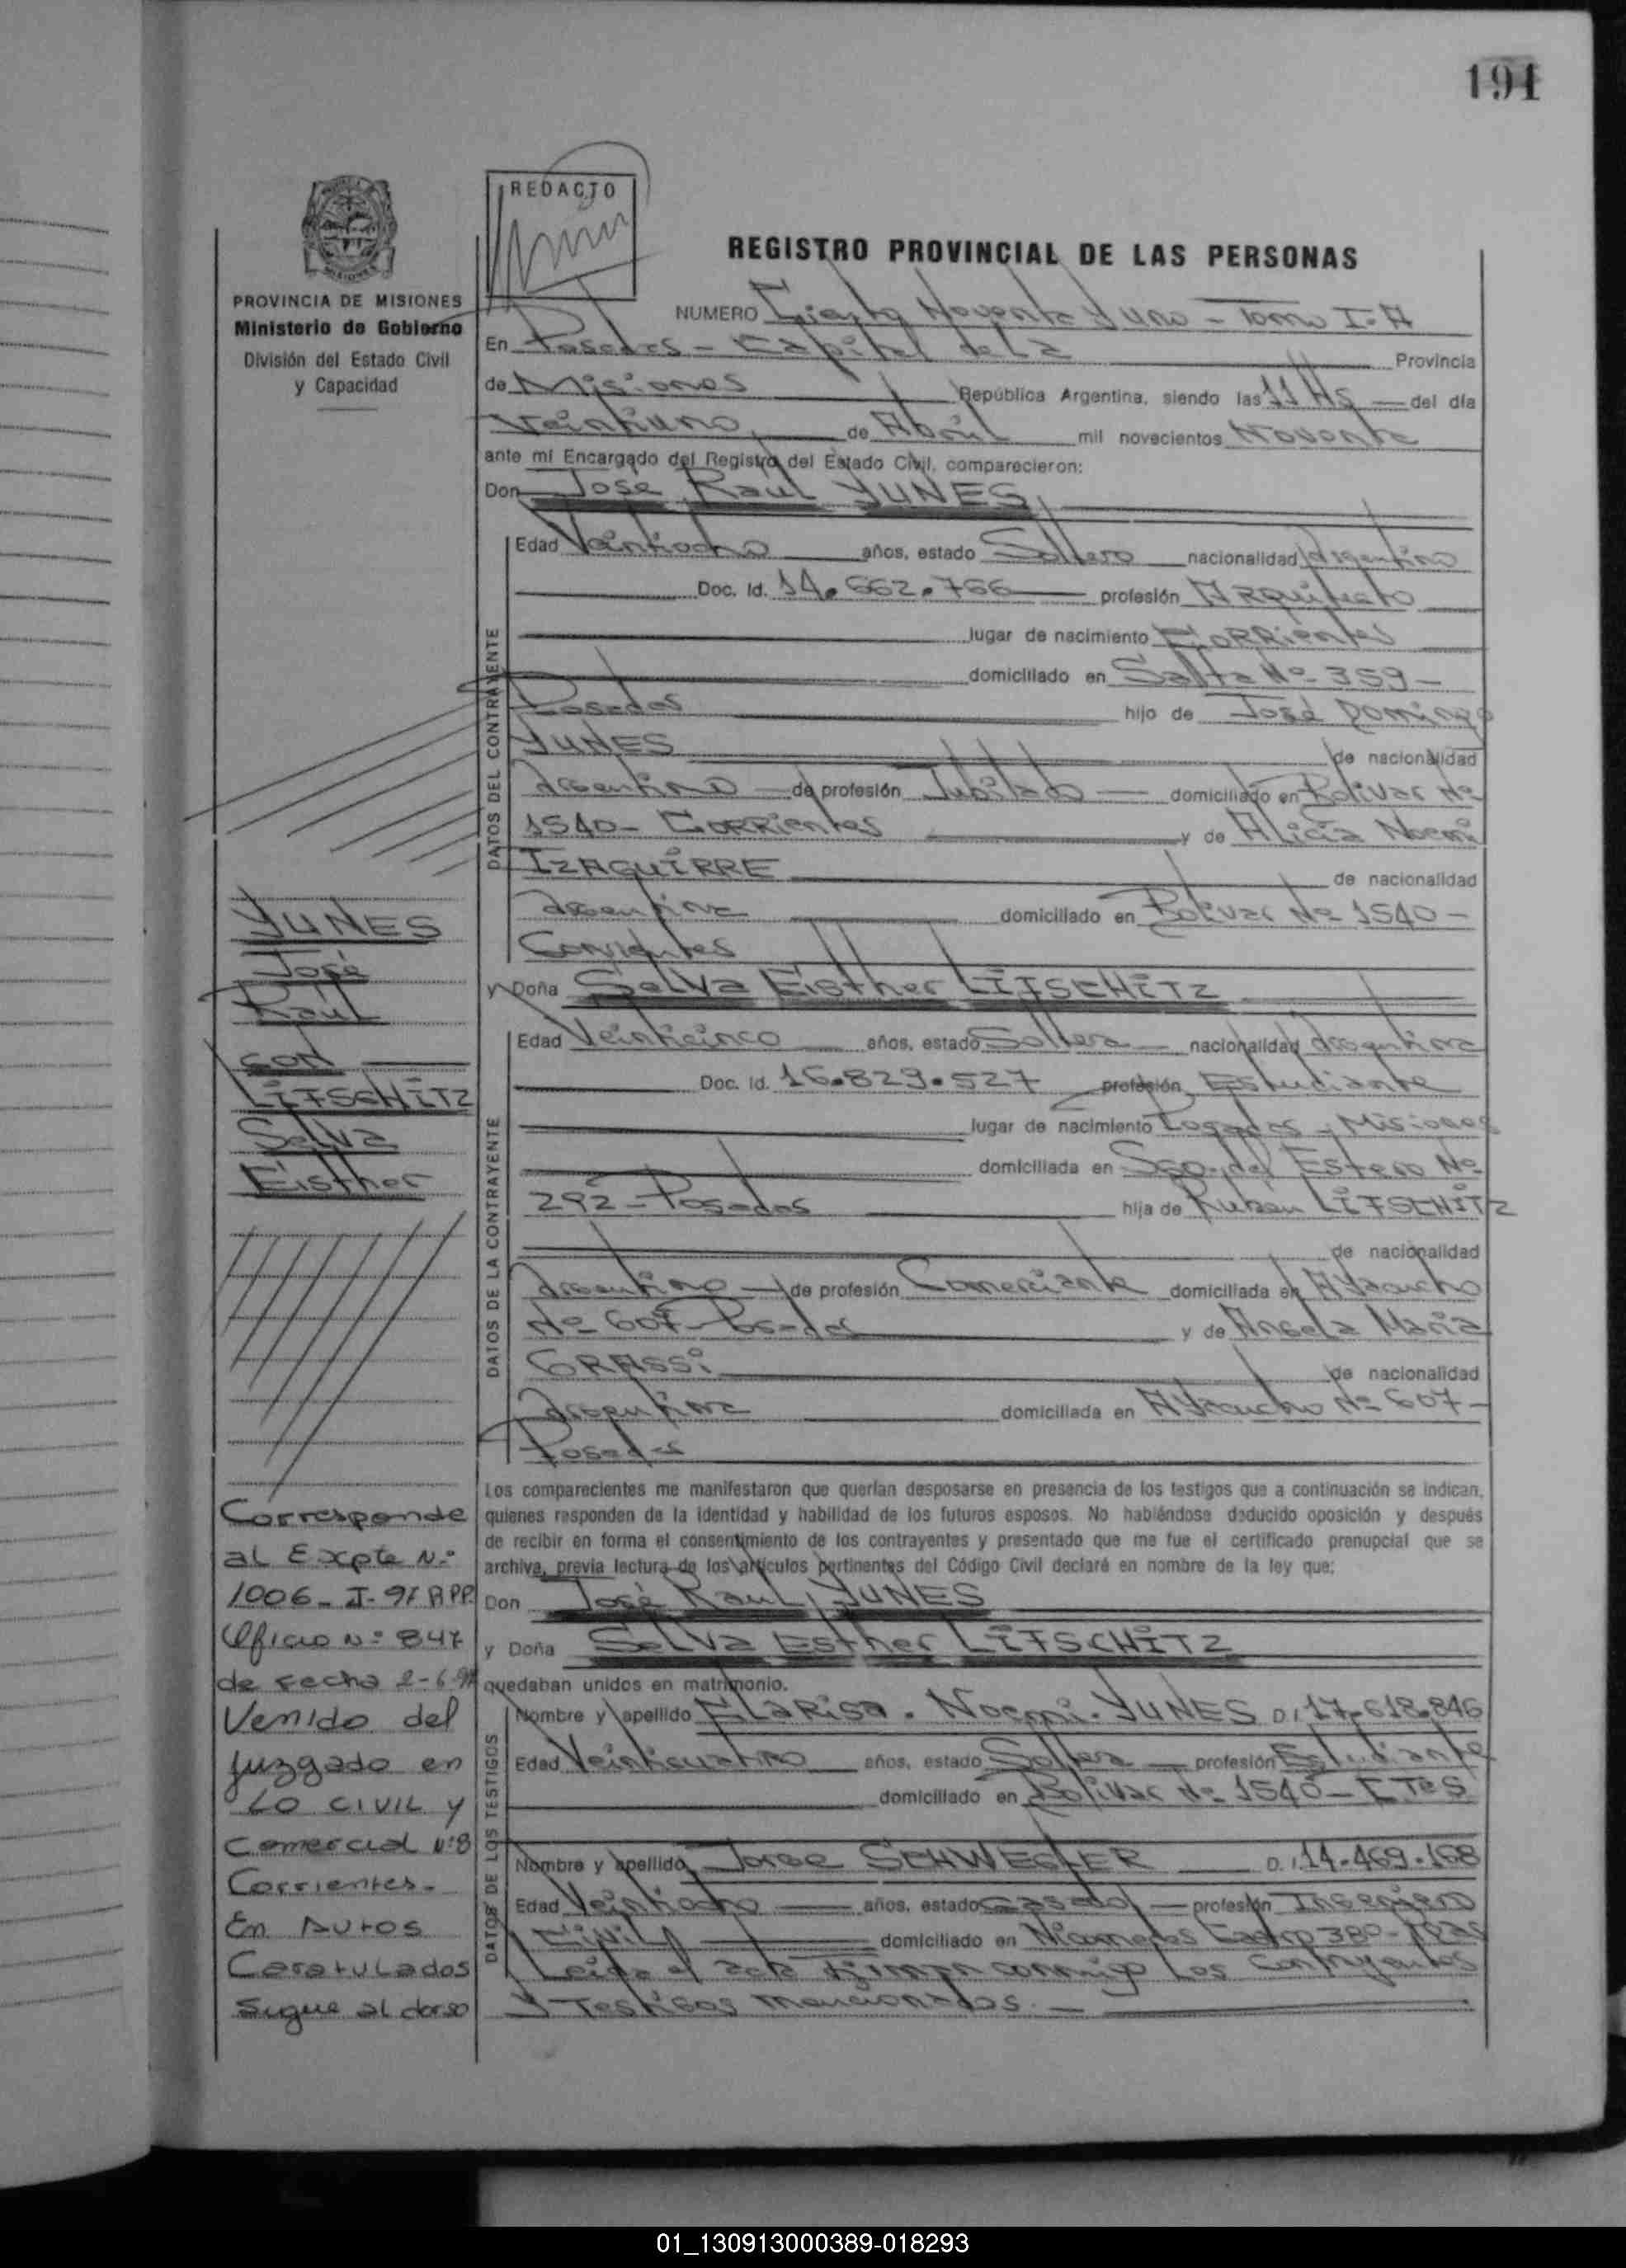 191
REDACTO
PROVINCIA DE MISIONES
Ministerio de Gobierno
División del Estado Civil
y Capacidad
REGISTRO PROVINCIAL DE LAS PERSONAS
NUMERO Ciento Noventa Y Uno - Tomo I-A
En Posadas - Capital de La Provincia
de Misiones República Argentina, siendo las 11 Hs del día
Veintiuno de Abril mil novecientos Noventa
ante mí Encargado del Registro del Estado Civil, comparecieron:
Don José Raúl YUNES
DATOS DEL CONTRAYENTE
Edad Veintiocho años, estado Soltero nacionalidad Argentino
Doc. Id. 14.662.766 profesión Arquitecto
lugar de nacimiento Corrientes
domiciliado en Salta Nº 359 -
Posadas hijo de José Domingo
YUNES de nacionalidad
Argentino de profesión Jubilado domiciliado en Bolivar Nº
1540 - Corrientes y de Alicia Noemi
IZAGUIRRE de nacionalidad
Argentina domiciliado en Bolivar Nº 1540 -
Corrientes
y Doña Selva Eisther LIFSCHITZ
DATOS DE LA CONTRAYENTE
Edad Veinticinco años, estado Soltera nacionalidad Argentina
Doc. Id. 16.829.527 profesión Estudiante
lugar de nacimiento Posadas - Misiones
domiciliada en Sgo. del Estero Nº
292 - Posadas hija de Ruben LIFSCHITZ
de nacionalidad
Argentino de profesión Comerciante domiciliada en Ayacucho
Nº 607 - Posadas y de Angela Maria
GRASSI de nacionalidad
Argentina domiciliada en Ayacucho Nº 607 -
Posadas
Los comparecientes me manifestaron que querían desposarse en presencia de los testigos que a continuación se indican,
quienes responden de la identidad y habilidad de los futuros esposos. No habiéndose deducido oposición y después
de recibir en forma el consentimiento de los contrayentes y presentado que me fue el certificado prenupcial que se
archiva, previa lectura de los artículos pertinentes del Código Civil declaré en nombre de la ley que:
Don José Raul YUNES
y Doña Selva Esther LIFSCHITZ
quedaban unidos en matrimonio.
DATOS DE LOS TESTIGOS
Nombre y apellido Clarisa. Noemi. YUNES D.I 17.618.846
Edad Veinticuatro años, estado Soltera profesión Estudiante
domiciliado en Bolivar Nº 1540 - CTES
Nombre y apellido Jorge SCHWEGLER D.I. 14.469.168
Edad Veintiocho años, estado casado profesión Ingeniero
Civil domiciliado en Nicomedes Castro 380 - Pdas
Leida el acta firman conmigo Los Contrayentes
y Testigos mencionados. -
YUNES
José
Raúl
con
LIFSCHITZ
Selva
Eisther
Corresponde
al Expte Nº
1006 - I - 91 APP.
Oficio Nº 847
de fecha 2-6-9
Venido del
Juzgado en
LO CIVIL y
Comercial Nº 8
Corrientes.
En Autos
Caratulados
Sigue al dorso
01_130913000389-018293